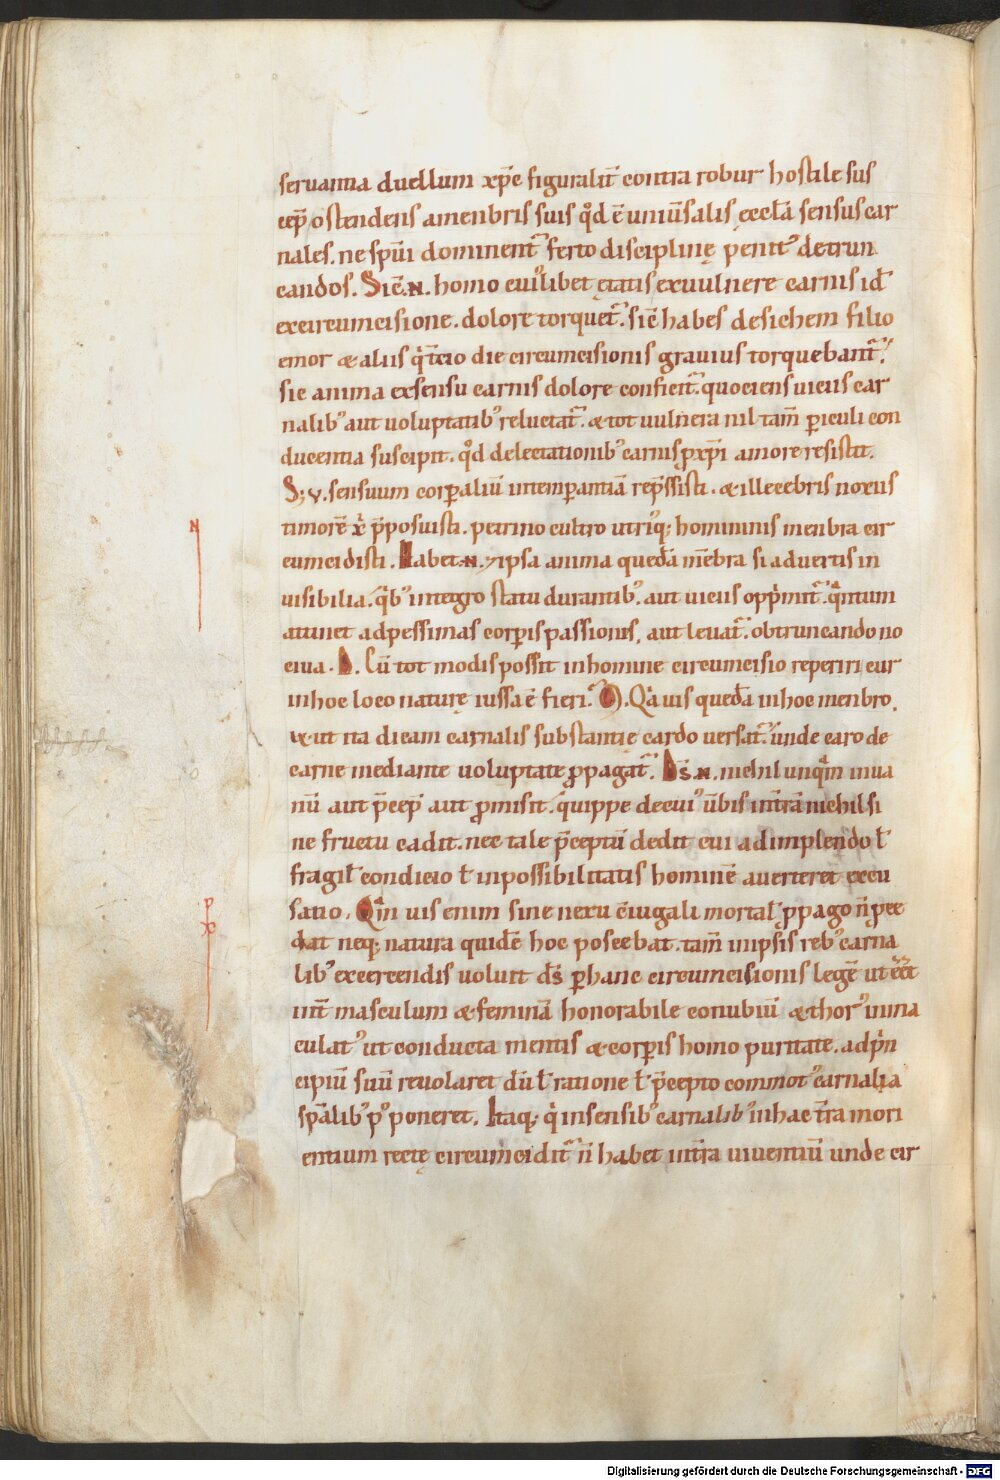 seruanria duellum xp̄e figuralit̄ contra robur hostile sus
cep̄ ostendens amenbris suis qd̊ ē uniū salis ęccłā sensus car
nales. ne spūi dominent᷑ ferro disciplinę penit᾿ detrun
candos. Sic̄.N. homo cui᾿libet ętatis exuulnere carnis id᷎
excircumcisione. dolore torquet᷑. sic̄ habes desichem filio
emor & aliis q̇ tcio die circumcisionis grauius torquebant᷑.
sic anima exsensu carnis dolore conficit᷑. quociens uicus car
nalib᾿ aut uoluptatib᾿ reluctat᷑. & tot uulnera nil tam̄ ꝑiculi con
ducentia suscipit. qd̊ delectationib᾿ carnis ꝓ xp̄i amore resistit.
S; v. sensuum corꝑaliū intemꝑantiā rep̄ssisti. & illecebris noxiis
timorē xp̄i p̄posuisti. petrino cultro utri᾿q; hominis menbra cir
cumcidisti. Habet.N. & ipsa anima quedā mēbra si aduertis in
uisibilia. qb᾿ integro statu durantib᾿. aut uicus opp̄mit᷑. qntum
attinet adpessimas corꝑis passionis, aut leuat᷑. obtruncando no
ciua. D. Cū tot modis possit inhomine circumcisio reperiri cur
inhoc loco naturę iussa ē fieri. M. Qa uis quedā inhoc menbro.
& ut ita dicam carnalis substantię cardo uersat᷑. unde caro de
carne mediante uoluptate ꝓpagat᷑. D̄s.N. nichil unqm̄ inua
nū aut p̄cep̄ aut ꝓmisit. quippe decui᾿ ūbis int̄rā nichil si
ne fructu cadit. nec tale p̄ceptū dedit cui adimplendo ł
fragił condicio ł inpossibilitatis hominē auerteret excu
satio. Qm̄ uis enim sine nexu c̄iugali mortał ꝓpago n̄ ꝓce
dat neq; natura quidē hoc poscebat. tam̄ inipsis reb᾿ carna
lib᾿ excercendis uoluit d̄s ꝑ hanc circumcisionis legē ut ēēt
int̄ masculum & feminā honorabile conubiū & thor᾿ inma
culat᾿ ut conducta mentis & corꝑis homo puritate. adp̄n
cipiū suū reuolaret dū ł ratione ł p̄cepto commot᾿ carnalia
sp̄alib᾿ p᾿poneret. Itaq; q̇ insensib᾿ carnalib᾿ inhac t̄ra mori
entium rectę circumcidit᷑ n̄ habet int̄ra uiuentiū unde cir
N
p
x
Digitalisierung gefördert durch die Deutsche Forschungsgemeinschaft - DFG